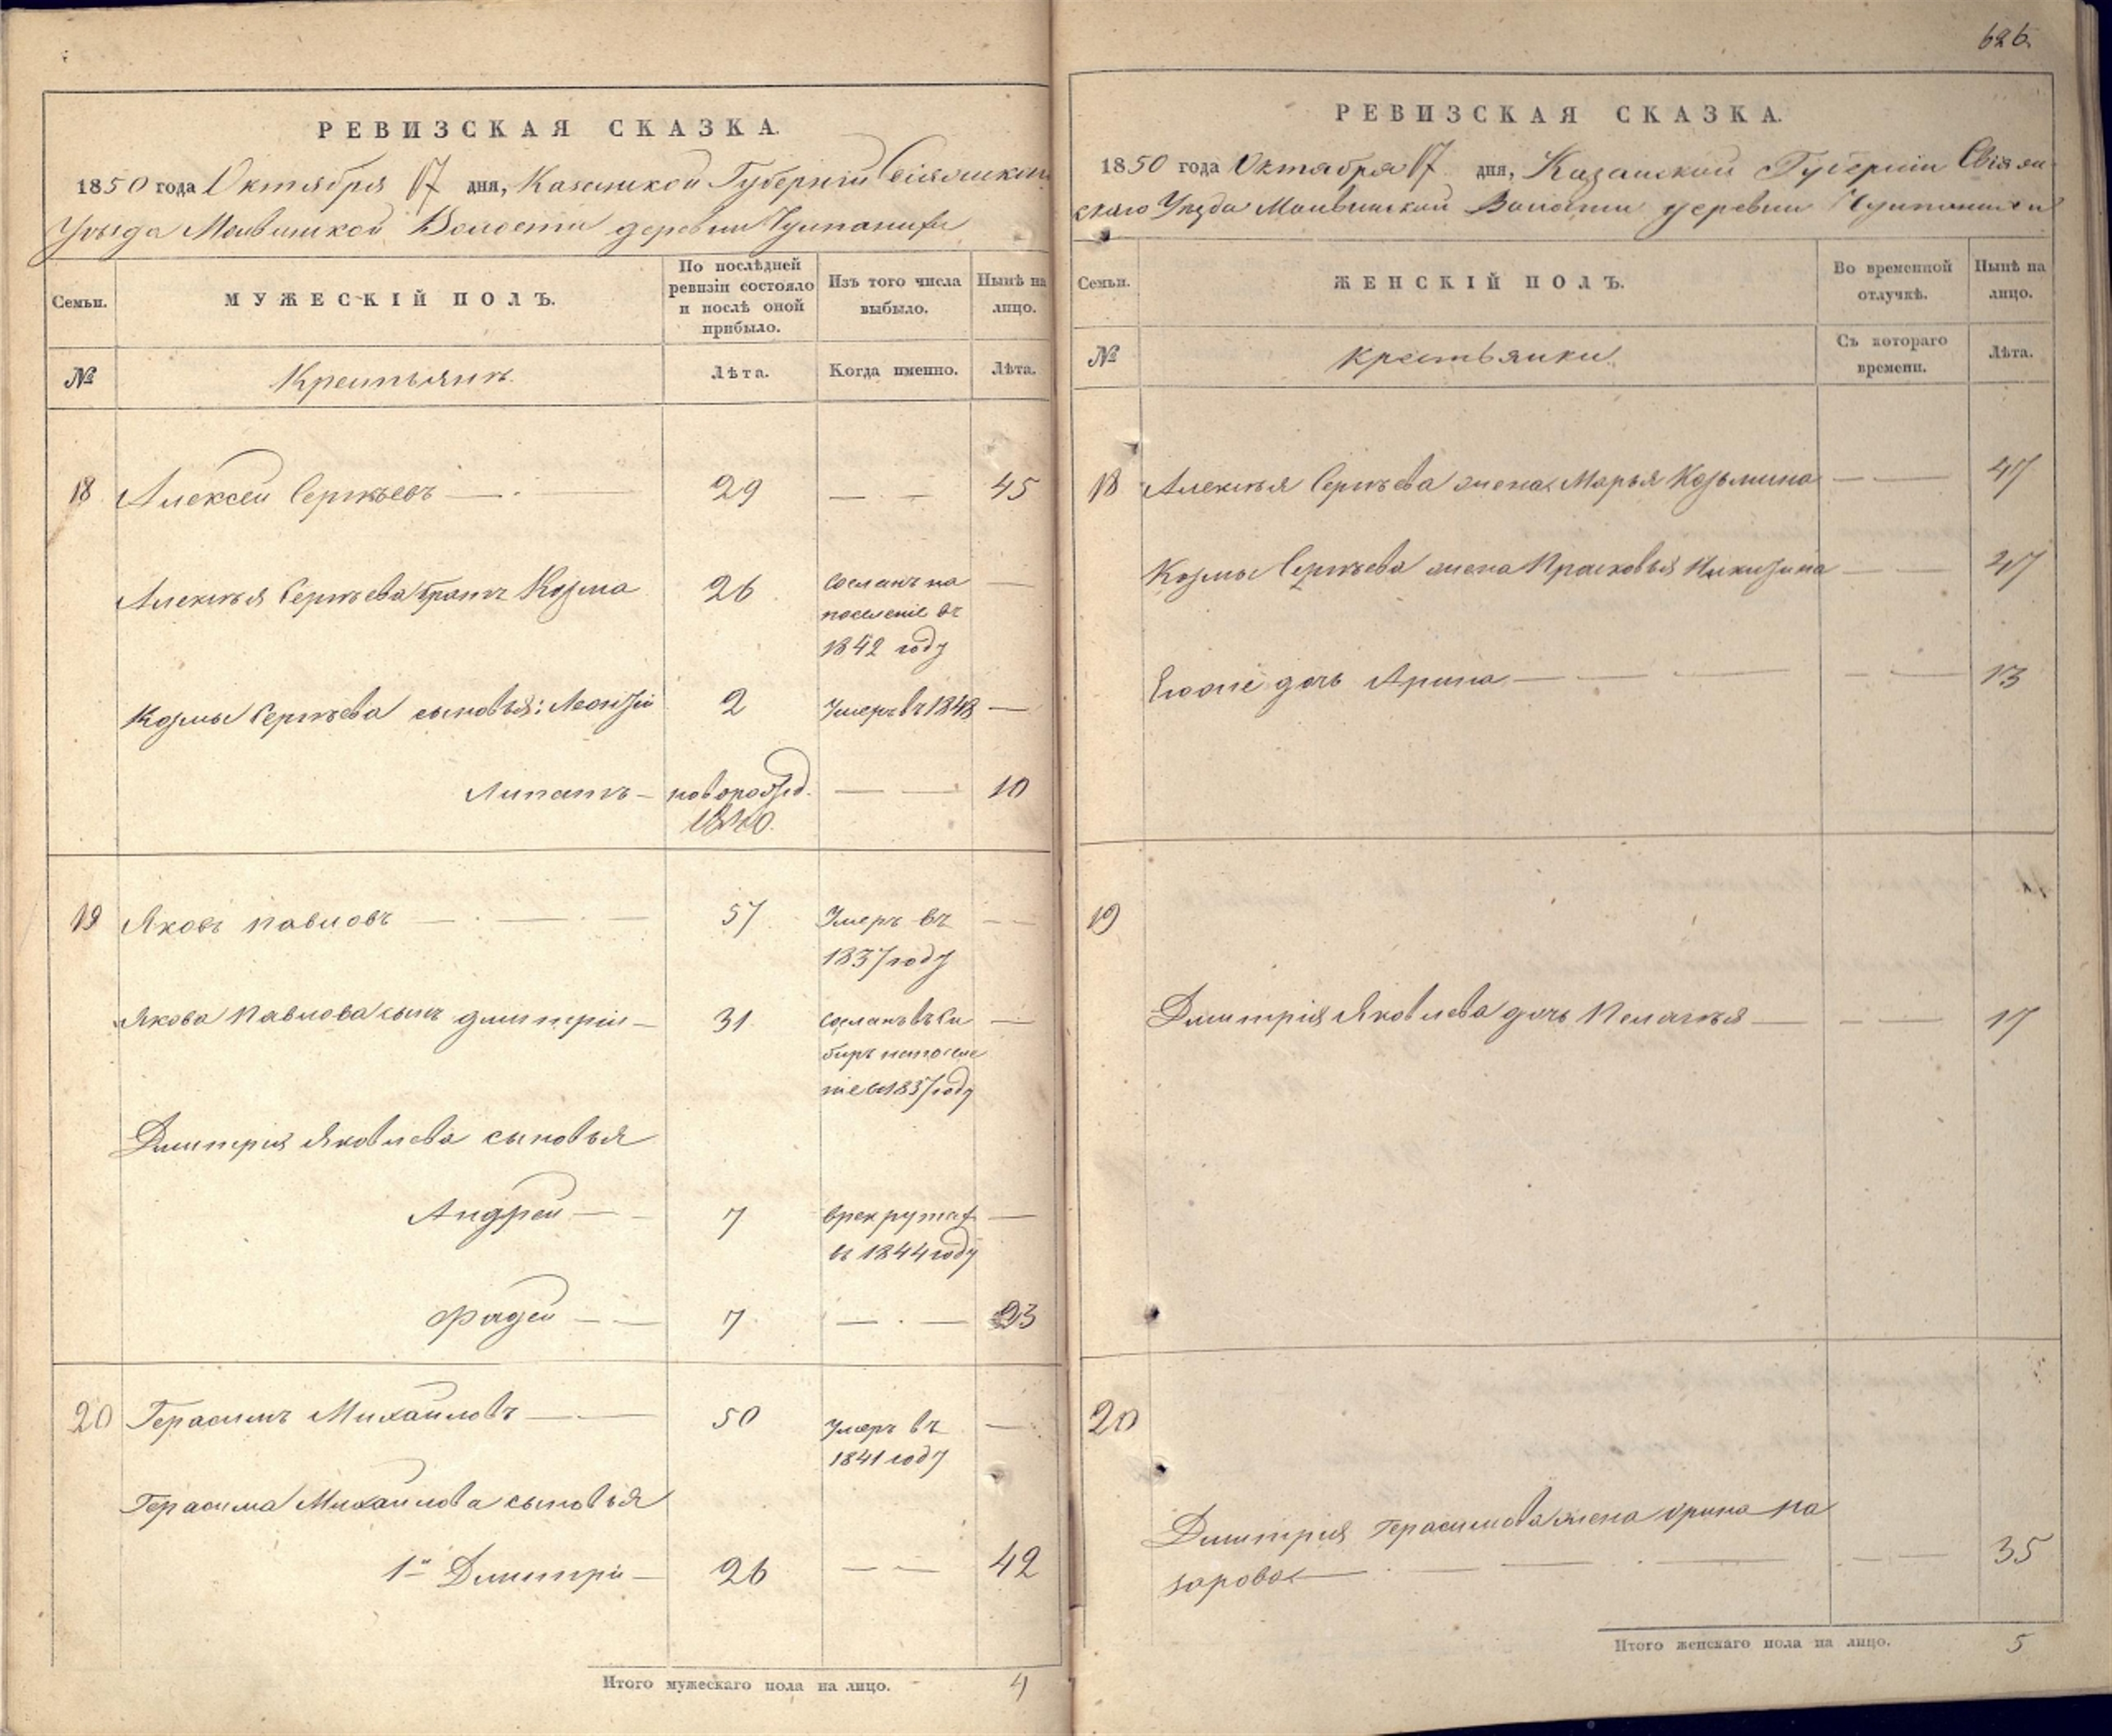 626.
РЕВИЗСКАЯ СКАЗКА.
1850 года Октября 17 дня, Казанской Губерніи Свіяжскаго
Уѣзда Волости деревни
Семьи.
МУЖЕСКІЙ ПОЛЪ.
По послѣдней ревизіи состояло и послѣ оной прибыло.
Изъ того числа выбыло.
Нынѣ на лицо.
№
Крестьянъ.
Лѣта.
Когда именно.
Лѣта.
18 Алексей Сергѣевъ — 29 — — 45
Алексѣя Сергѣева братъ Козма 26 Сосланъ на —
поселеніе въ
1842 году
Козмы Сергѣева сыновья: Леонтій 2 Умеръ въ 1848 —
Липатъ — новорожд. — — 10
1840.
19 Яковъ Павловъ — 57 Умеръ въ —
1837 году
Якова Павлова сынъ Дмитрій — 31 Сосланъ въ Си —
биръ на поселе
ніе въ 1837 году
Дмитрія Яковлева сыновья
Андрей — 7 въ рекруты —
въ 1844 году
Фадей — 7 — — 23
20 Герасимъ Михайловъ — 50 Умеръ въ —
1841 году
Герасима Михайлова сыновья
1й Дмитрій — 26 — — 42
Итого мужескаго пола на лицо. 4
РЕВИЗСКАЯ СКАЗКА.
1850 года Октября 17 дня, Казанской Губерніи Свіяж
скаго Уѣзда Волости деревни
Семьи.
ЖЕНСКІЙ ПОЛЪ.
Во временной отлучкѣ.
Нынѣ на лицо.
№
крестьянки
Съ котораго времени.
Лѣта.
18 Алексѣя Сергѣева жена Марья Козьмина — — 47
Козмы Сергѣева жена Прасковья Никитина — — 47
Его же дочь Арина — — — 13
19
Дмитрія Яковлева дочь Пелагѣя — — — 17
20
Дмитрія Герасимова жена Орина На
зарова — — — 35
Итого женскаго пола на лицо. 5